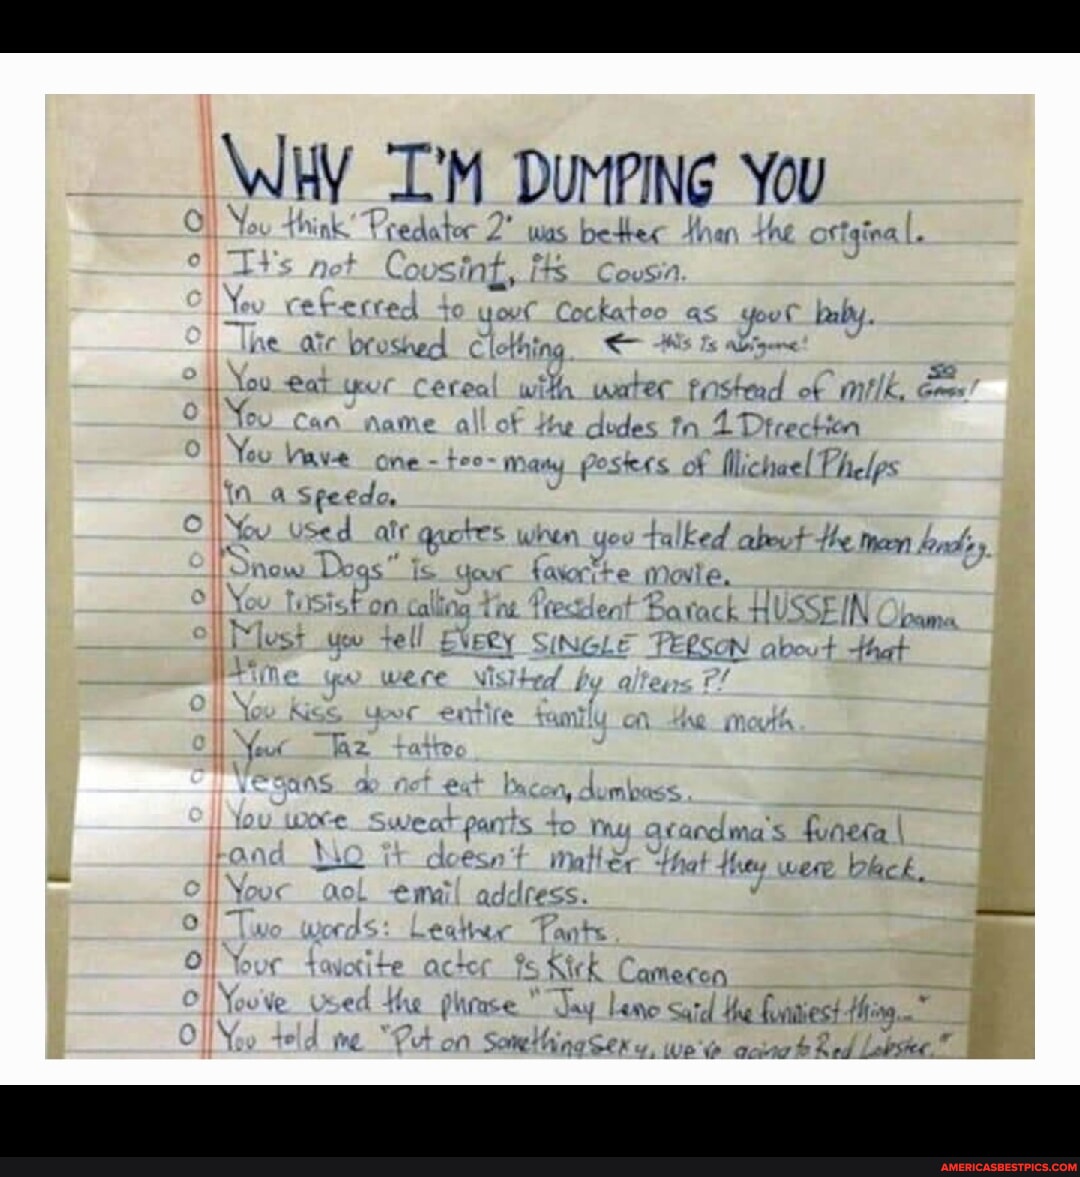 WHY I'M DUMPING YOU
o You think "Predator 2" was better than the original.
o It's not Cousint, it's Cousin.
o You referred to your cockatoo as your baby.
o The air brushed clothing. ← this is a biggone!
o You eat your cereal with water instead of milk. SO GROSS!
o You can name all of the dudes in 1 Direction
o You have one-too-many posters of Michael Phelps
in a speedo.
o You used air quotes when you talked about the moon landing.
o "Snow Dogs" is your favorite movie.
o You insist on calling the President Barack HUSSEIN Obama
o Must you tell EVERY SINGLE PERSON about that
time you were visited by aliens?!
o You kiss your entire family on the mouth.
o Your Taz tattoo.
o Vegans do not eat bacon, dumbass.
o You wore sweatpants to my grandma's funeral
-and NO it doesn't matter that they were black.
o Your aol email address.
o Two words: Leather Pants.
o Your favorite actor is Kirk Cameron
o You've used the phrase "Jay Leno said the funniest thing..."
o You told me "Put on something sexy, we're going to Red Lobster."
AMERICASBESTPICS.COM